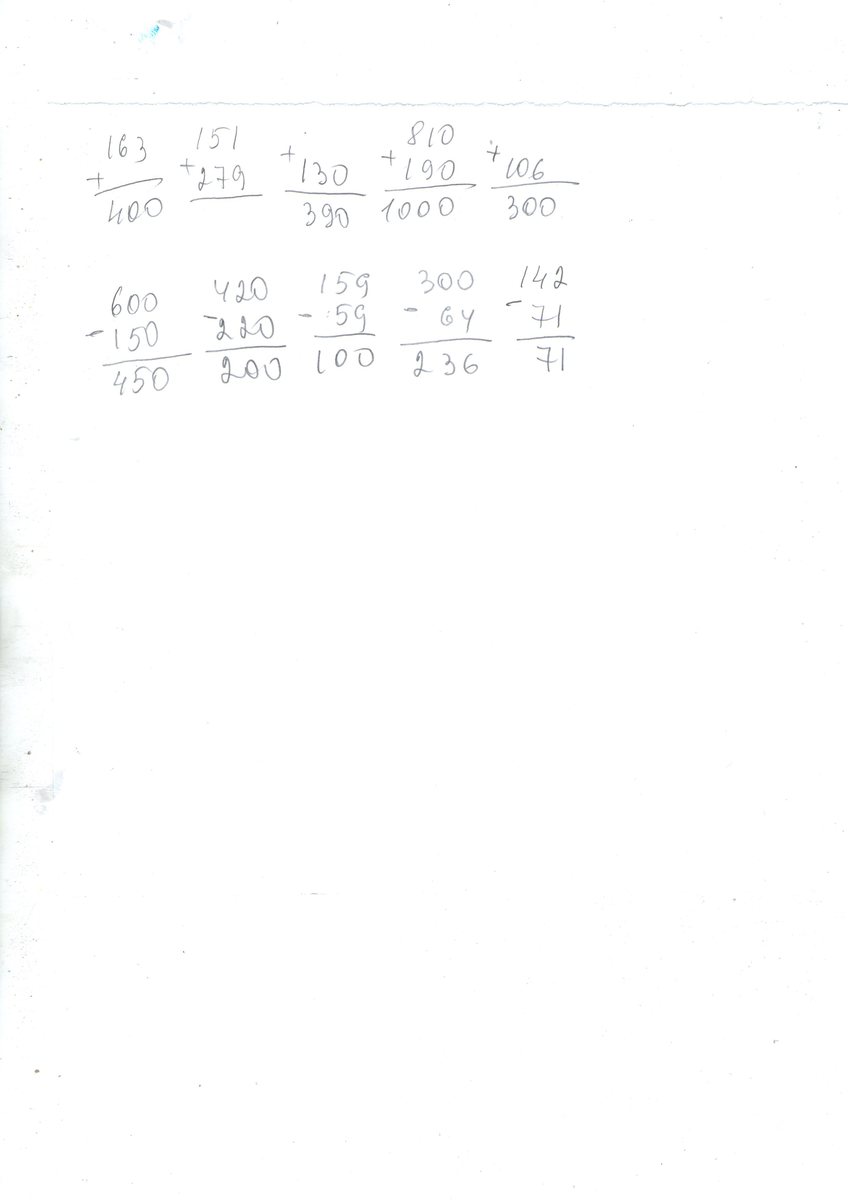 163 151 810
+ + 279 + 130 + 190 + 106
400 390 1000 300
600 420 159 300 142
- 150 - 220 - 59 - 64 - 71
450 200 100 236 71